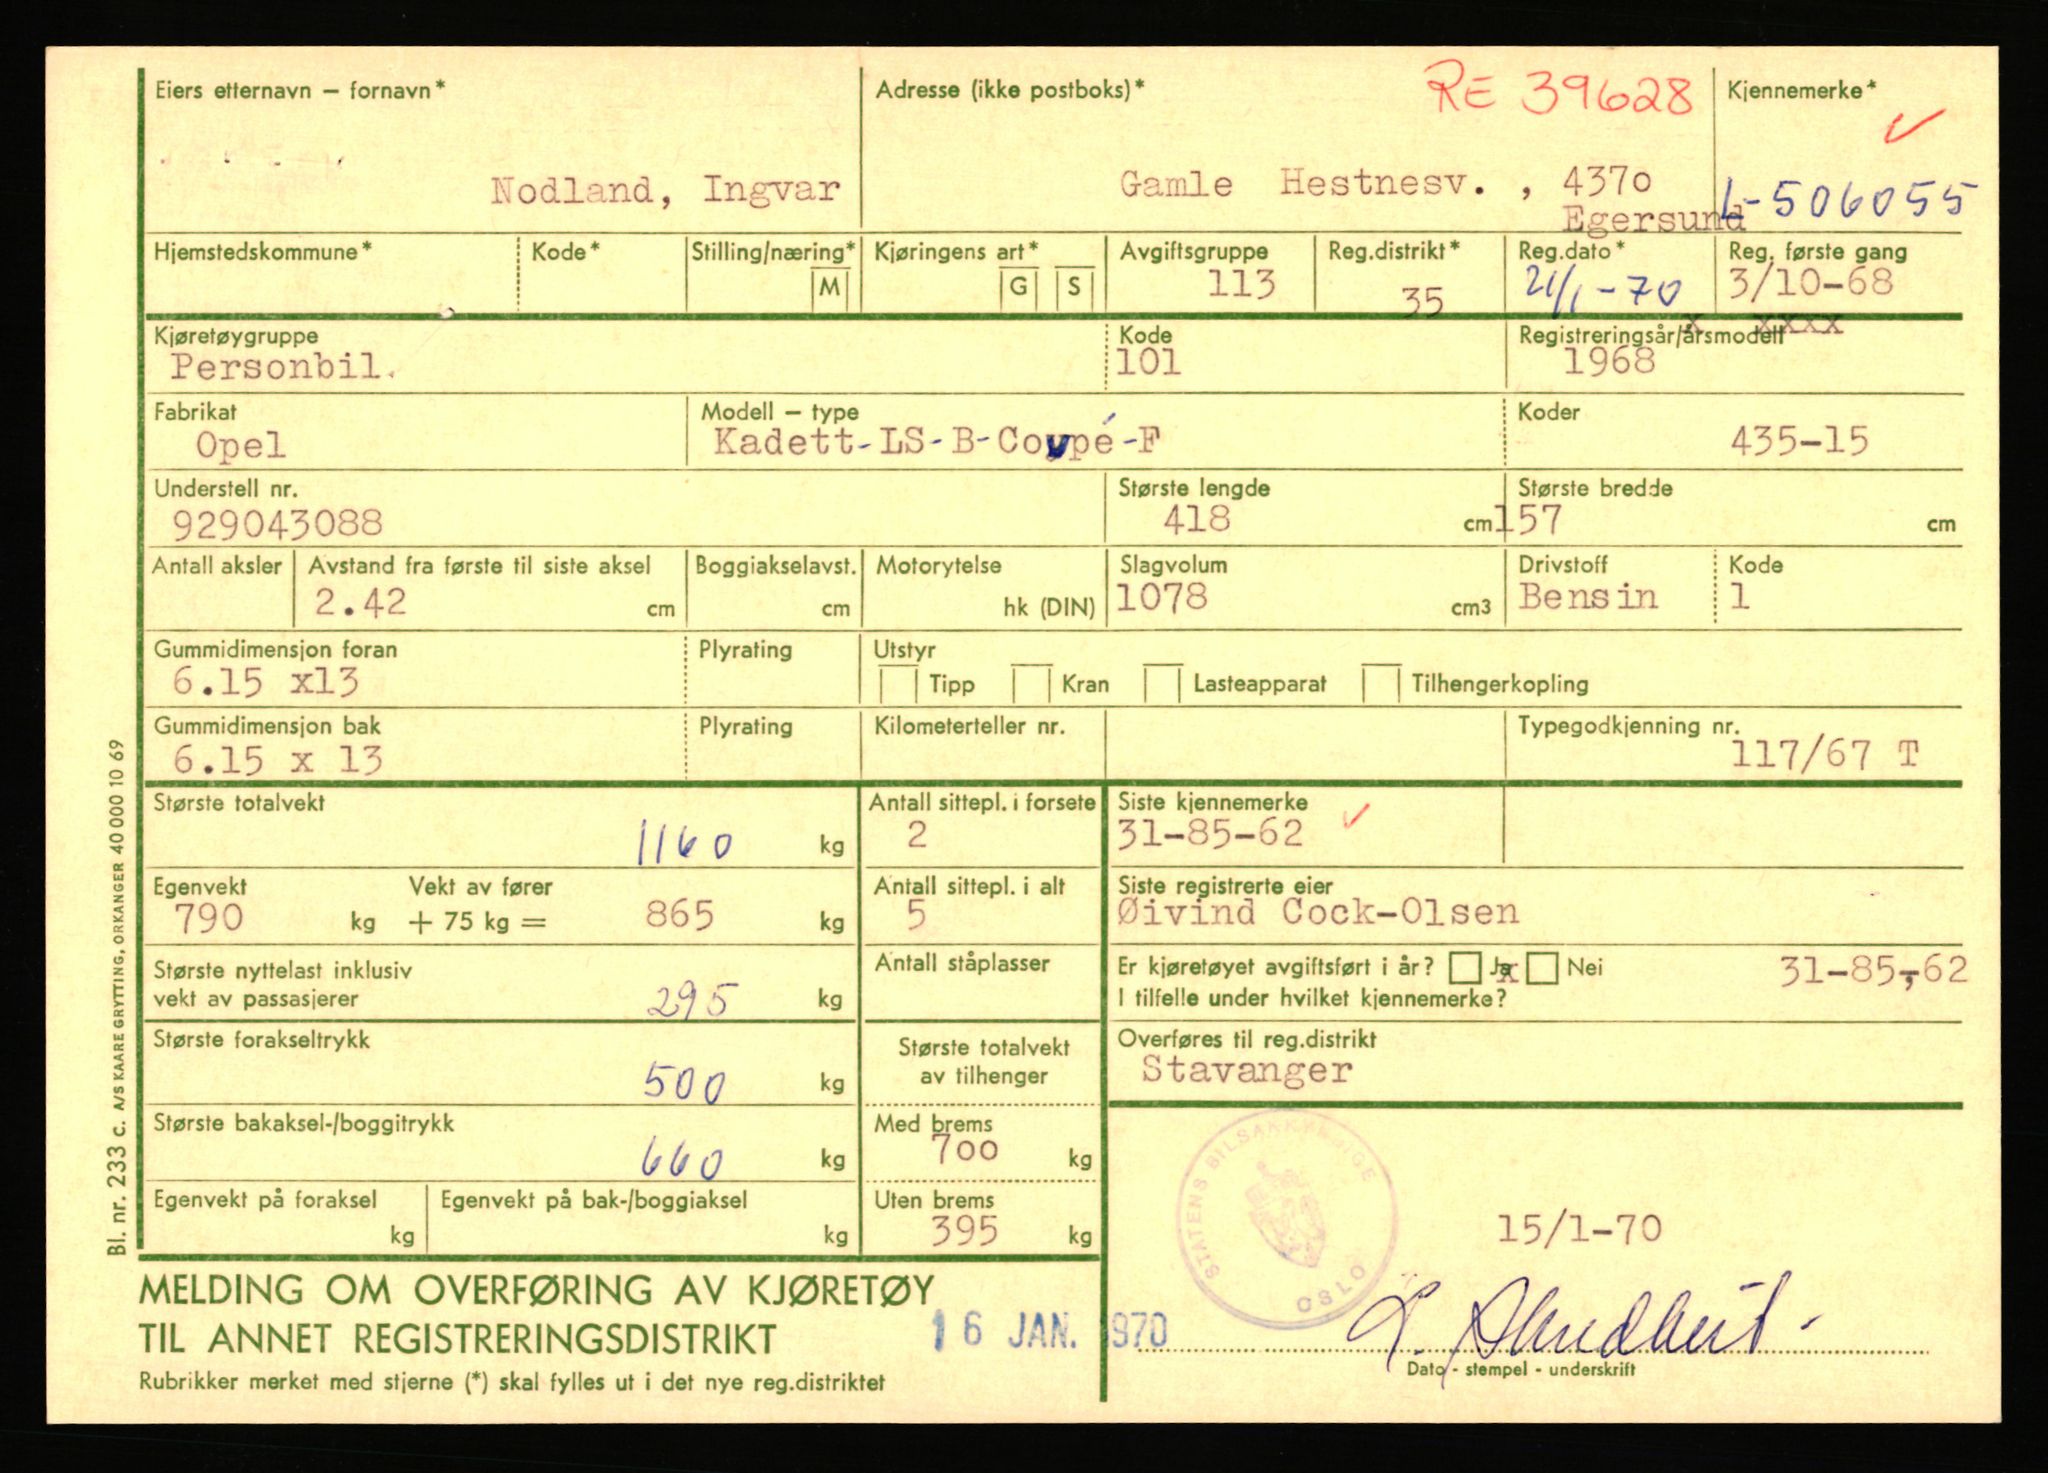 Eiers etternavn – fornavn*
Adresse (ikke postboks)*
RE 39628
Kjennemerke*
Nodland, Ingvar
Gamle Hestnesv. , 4370
Egersund
L-506055
Hjemstedskommune*
Kode*
Stilling/næring*
M
Kjøringens art*
G
S
Avgiftsgruppe
113
Reg.distrikt*
35
Reg.dato*
21/1-70
Reg. første gang
3/10-68
Kjøretøygruppe
Personbil.
Kode
101
Registreringsår/årsmodell
x xxxx
1968
Fabrikat
Opel
Modell – type
Kadett-LS-B-Coupé-F
Koder
435-15
Understell nr.
929043088
Største lengde
418 cm
Største bredde
157 cm
Antall aksler
Avstand fra første til siste aksel
2.42 cm
Boggiakselavst.
cm
Motorytelse
hk (DIN)
Slagvolum
1078 cm3
Drivstoff
Bensin
Kode
1
Gummidimensjon foran
6.15 x13
Plyrating
Utstyr
Tipp
Kran
Lasteapparat
Tilhengerkopling
Gummidimensjon bak
6.15 x 13
Plyrating
Kilometerteller nr.
Typegodkjenning nr.
117/67 T
Største totalvekt
1160 kg
Antall sittepl. i forsete
2
Siste kjennemerke
31-85-62
Egenvekt
790 kg
Vekt av fører
+ 75 kg = 865 kg
Antall sittepl. i alt
5
Siste registrerte eier
Øivind Cock-Olsen
Største nyttelast inklusiv
vekt av passasjerer
295 kg
Antall ståplasser
Er kjøretøyet avgiftsført i år? Ja x Nei
31-85-,62
I tilfelle under hvilket kjennemerke?
Største forakseltrykk
500 kg
Største totalvekt
av tilhenger
Overføres til reg.distrikt
Stavanger
Største bakaksel-/boggitrykk
660 kg
Med brems
700 kg
Egenvekt på foraksel
kg
Egenvekt på bak-/boggiaksel
kg
Uten brems
395 kg
STATENS BILSAKKYNDIGE
OSLO
15/1-70
MELDING OM OVERFØRING AV KJØRETØY
TIL ANNET REGISTRERINGSDISTRIKT
16 JAN. 1970
Rubrikker merket med stjerne (*) skal fylles ut i det nye reg.distriktet
Dato - stempel - underskrift
Bl. nr. 233 c. A/S KAARE GRYTTING, ORKANGER 40 000 10 69